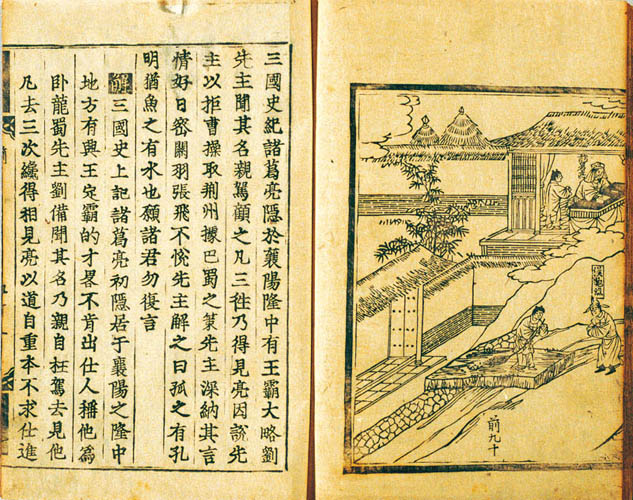 前九十
三國史紀諸葛亮隱於襄陽隆中有王霸大略劉
先主聞其名親駕顧之凡三徃乃得見亮因說先
主以拒曹操取荊州據巴蜀之策先主深納其言
情好日密關羽張飛不悅先主解之曰孤之有孔
明猶魚之有水也願諸君勿復言
解三國史上記諸葛亮初隱居于襄陽之隆中
地方有興王定霸的才畧不肯出仕人稱他為
卧龍蜀先主劉備聞其名乃親自枉駕去見他
凡去三次纔得相見亮以道自重本不求仕進